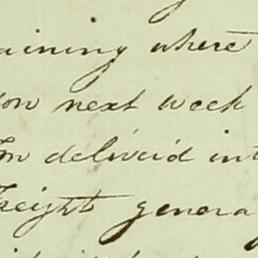 aining where
ow next week
m deliver'd int
reight genera